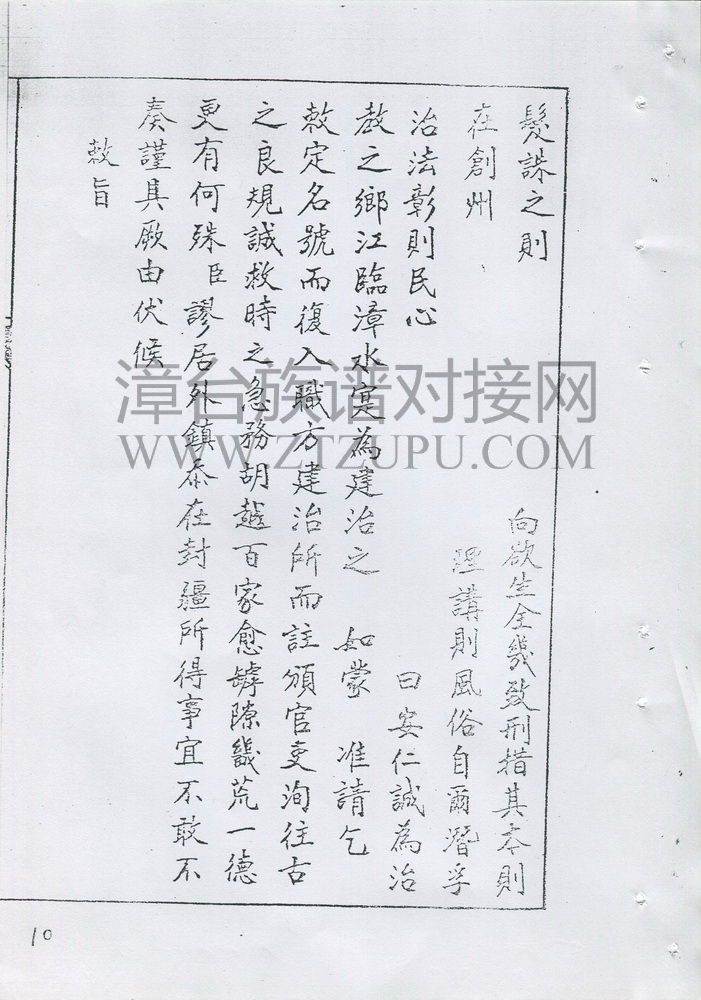 髮誅之則 向欲生全幾致刑措其本則
在創州 理講則風俗自爾潛孚
治法彰則民心 曰安仁誠為治
教之鄉江臨漳水寔為建治之 如蒙 准請乞
敕定名號而復入職方建治所而註頒官吏洵往古
之良規誠救時之急務胡越百家愈罅隙畿荒一德
更有何殊臣謬居外鎮忝在封疆所得事宜不敢不
奏謹具厥由伏候
敕旨
漳台族谱对接网
WWW.ZTZUPU.COM
10